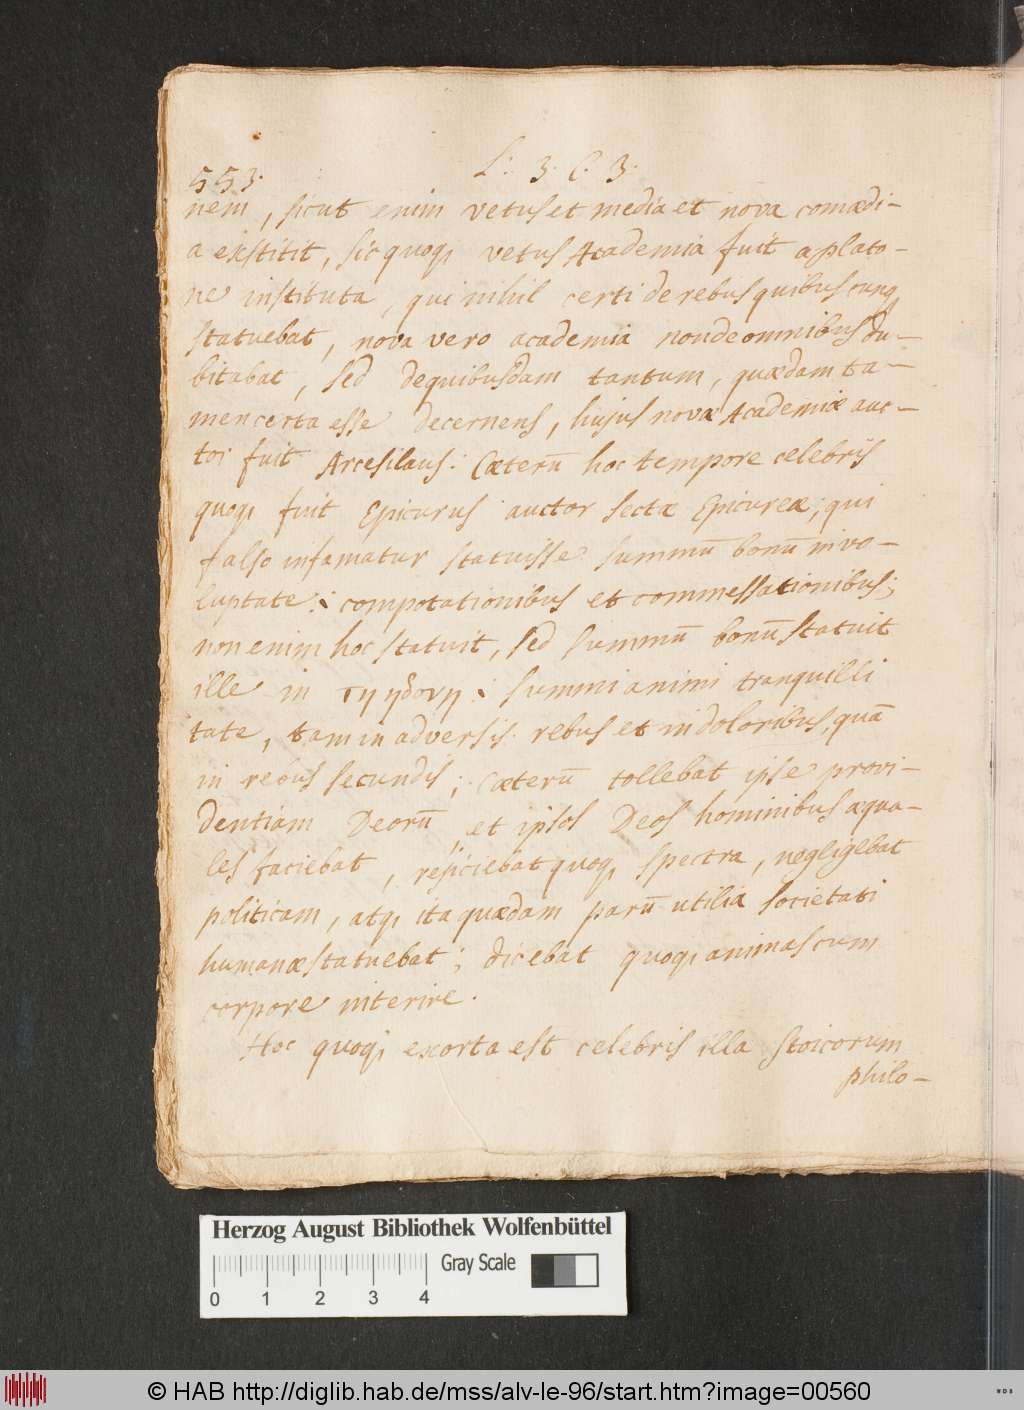 553.
L: 3. C. 3.
nem, sicut enim vetus et media et nova comædi-
a exstitit, sic quoq, vetus Academia fuit a plato-
ne instituta, qui nihil certi de rebus quibuscunq
statuebat, nova vero academia non de omnibus du-
bitabat, sed de quibusdam tantum, quædam ta-
men certa esse decernens, hujus novæ Academiæ auc-
tor fuit Arcesilaus: Cæterū hoc tempore celebris
quoq, fuit Epicurus auctor sectæ Epicureæ; qui
falso infamatur statuisse summū bonū in vo-
luptate: compotationibus et commessationibus;
non enim hoc statuit, sed summū bonū statuit
ille in τη ηδονη: summi animi tranquilli
tate, tam in adversis rebus et in doloribus, quā
in rebus secundis; Cæterū tollebat ipse provi-
dentiam Deorū et ipsos Deos hominibus æqua-
les faciebat, rejiciebat quoq, spectra, negligebat
politicam, atq, ita quædam parū utilia societati
humanæ statuebat; dicebat quoq, animas cum
corpore interire.
Hoc quoq, exorta est celebris illa stoicorum
philo-
Herzog August Bibliothek Wolfenbüttel
Gray Scale
0 1 2 3 4
© HAB http://diglib.hab.de/mss/alv-le-96/start.htm?image=00560